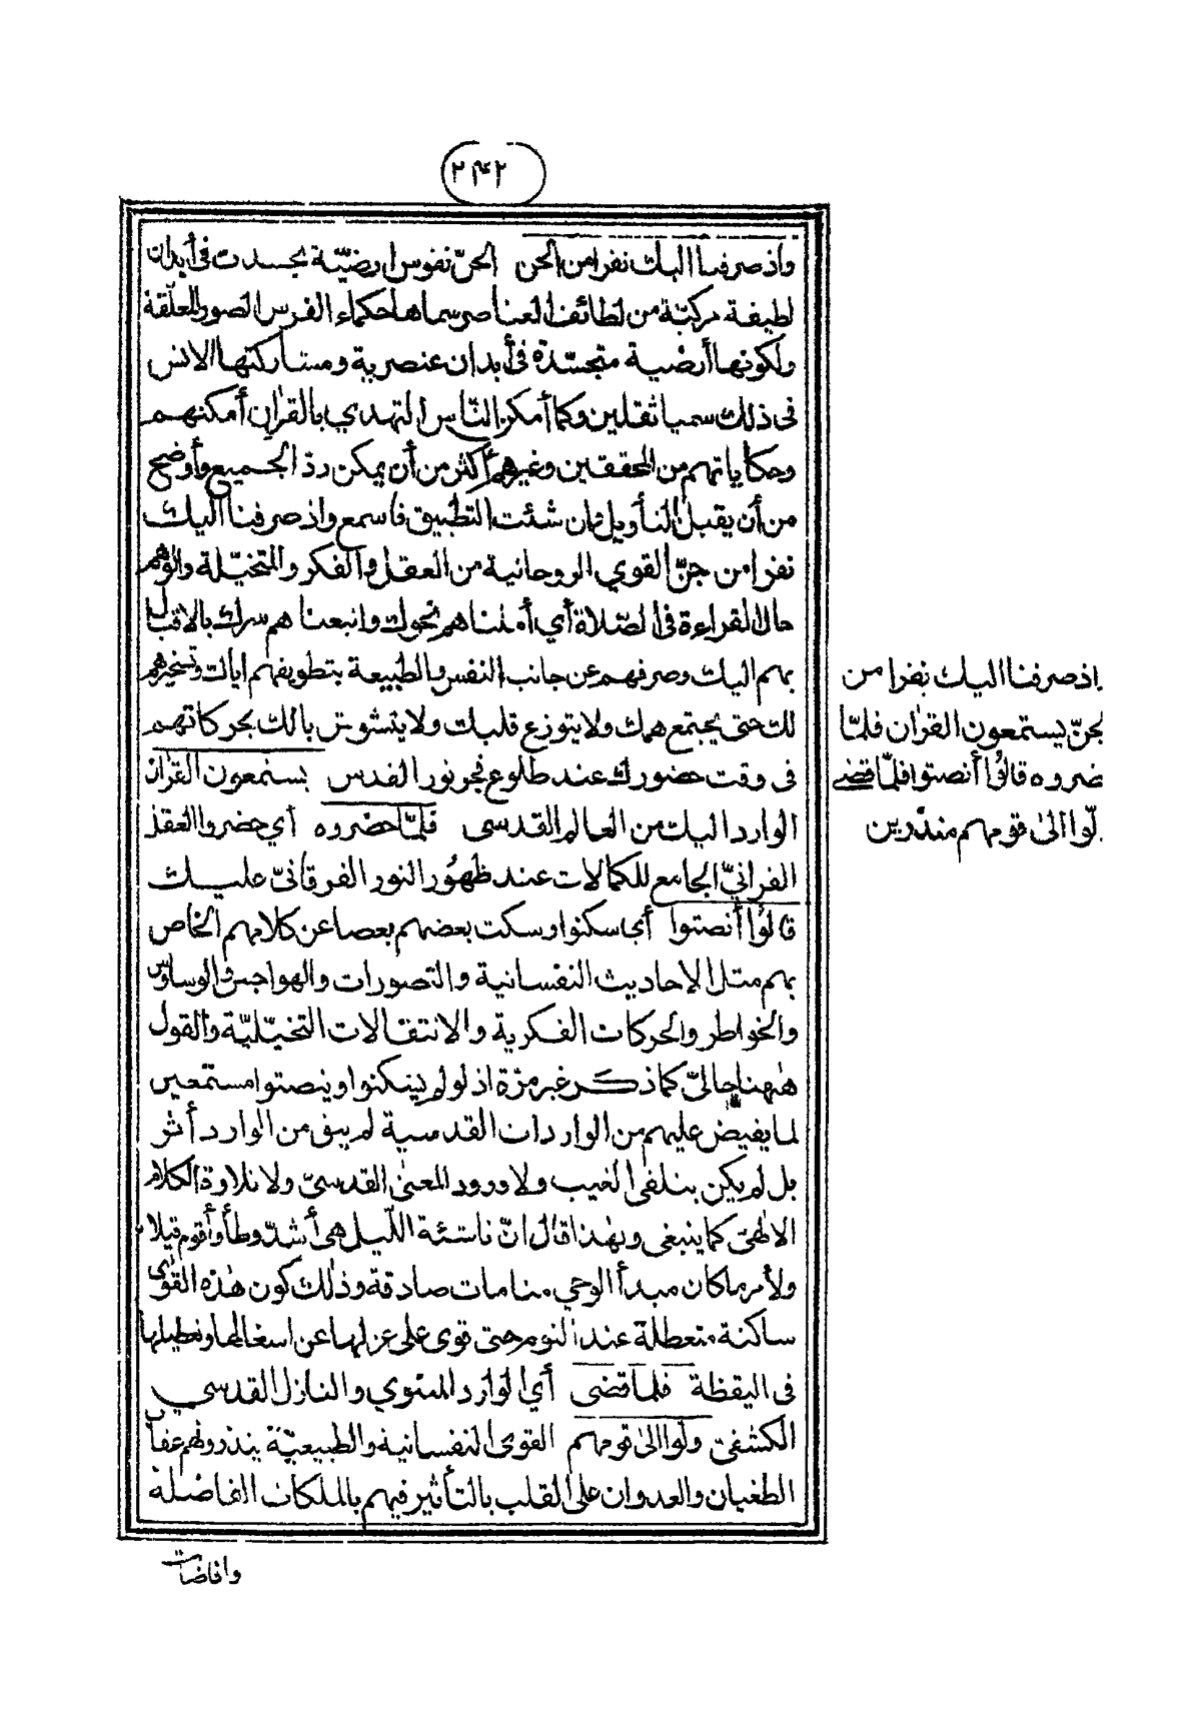 ٢٤٢
واذ صرفنا اليك نفرا من الجن الجنّ نفوس ارضيّة تجسدت فى أبدان
لطيفة مركبّة من لطائف العناصر سماها حكماء الفرس الصور المعلّقة
ولكونها أرضية متجسّدة فى أبدان عنصرية ومشاركتها الانس
فى ذلك سميا ثقلين وكما أمكن النّاس التهدي بالقرآن أمكنهم
وحكاياتهم من المحققين وغيرهم أكثر من أن يمكن ردّ الجميع وأوضح
من أن يقبل التأويل وان شئت التطبيق فاسمع واذ صرفنا اليك
نفرا من جنّ القوي الروحانية من العقل والفكر والمتخيّلة والوهم
حال القراءة فى الصّلاة أي أملناهم نحوك واتبعناهم سرك بالاقبال
بهم اليك وصرفهم عن جانب النفس والطبيعة بتطويفهم اياك وتسخيرهم
لك حتى يجتمع همك ولا يتوزع قلبك ولا يتشوش بالك بحركاتهم
فى وقت حضورك عند طلوع فجر نور القدس يستمعون القرآن
الوارد اليك من العالم القدسى فلمّا حضروه أي حضروا العقل
القرآنيّ الجامع للكمالات عند ظهور النور الفرقانيّ عليك
قالوُا أنصتوا أي اسكنوا وسكت بعضهم بعضا عن كلامهم الخاص
بهم مثل الاحاديث النفسانية والتصورات والهواجس والوساوس
والخواطر والحركات الفكرية والانتقالات التخيّليّة والقول
هٰهنا حاليّ كما ذكر غير مرّة اذ لو لم يسكنوا وينصتوا مستمعين
لما يفيض عليهم من الواردات القدسية لم يبق من الوارد أثر
بل لم يكن يتلقى الغيب ولا ورود المعنىٰ القدسيّ ولا تلاوة الكلام
الالٰهىّ كما ينبغى وبهذا قال انّ ناشئة اللّيل هى أشدّ وطأ وأقوم قيلا
ولأمر ما كان مبدأ الوحي منامات صادقة وذٰلك كون هٰذه القوىٰ
ساكنة متعطلة عند النوم حتى قوى على عزلها عن اشغالها وتعطيلها
فى اليقظة فلما قضى أي الوارد المعنوي والنازل القدسي
الكشفىّ ولّوا الىٰ قومهم القوىٰ النفسانية والطبيعيّة ينذرونهم عقاب
الطغيان والعدوان علىٰ القلب بالتأثير فيهم بالملكات الفاضلة
وافاضات
اذ صرفنا اليك نفرا من
لجنّ يستمعون القرآن فلمّا
ضروه قالوُا أنصتوا فلمّا قضى
لّوا الىٰ قومهم منذرين